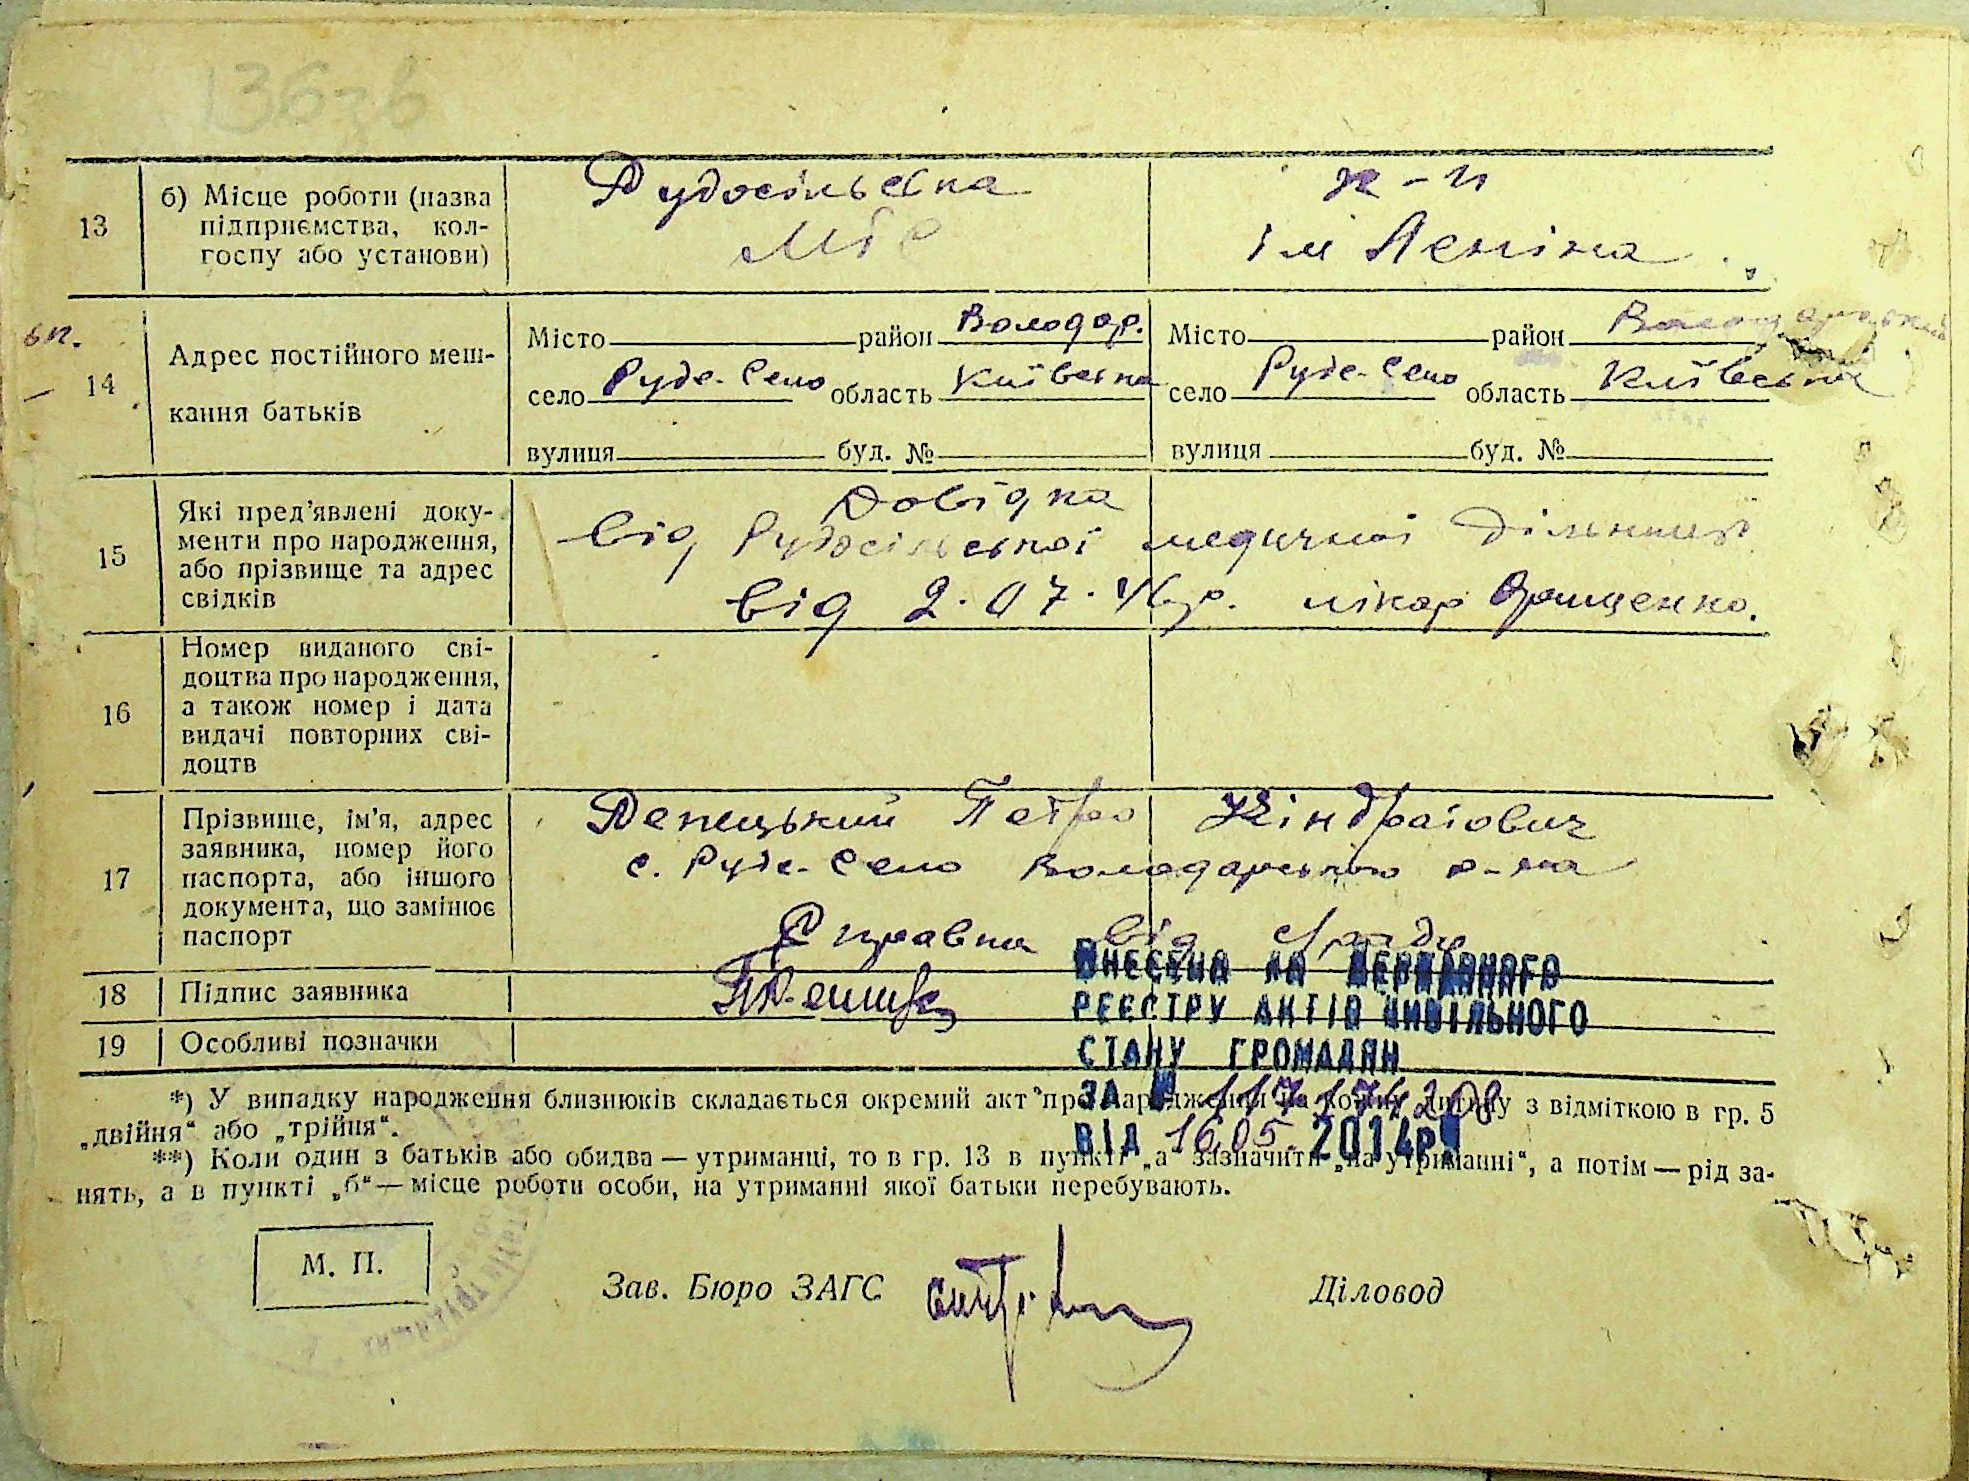 136зв
13
б) Місце роботи (назва
підприємства, кол-
госпу або установи)
Рудосільська
МТС
к-п
ім Леніна
14
Адрес постійного меш-
кання батьків
Місто район Володар.
село Руде-Село область Київська
вулиця буд. №
Місто район Володарський
село Руде-Село область Київська
вулиця буд. №
15
Які пред’явлені доку-
менти про народження,
або прізвище та адрес
свідків
Довідка
від Рудосільської медичної дільниці
від 2.07.46р. лікар
16
Номер виданого сві-
доцтва про народження,
а також номер і дата
видачі повторних сві-
доцтв
17
Прізвище, ім’я, адрес
заявника, номер його
паспорта, або іншого
документа, що замінює
паспорт
Петро Кіндратович
с. Руде-Село Володарського р-на
Справка від с/ради
18
Підпис заявника
19
Особливі позначки
ВНЕСЕНО ДО ДЕРЖАВНОГО
РЕЄСТРУ АКТІВ ЦИВІЛЬНОГО
СТАНУ ГРОМАДЯН
ЗА №
ВІД 16.05. 2014р
*) У випадку народження близнюків складається окремий акт про народження на кожну дитину з відміткою в гр. 5
„двійня“ або „трійня“.
**) Коли один з батьків або обидва — утриманці, то в гр. 13 в пункті „а“ зазначити „на утриманні“, а потім — рід за-
нять, а в пункті „б“ — місце роботи особи, на утриманні якої батьки перебувають.
М. П.
Зав. Бюро ЗАГС
Діловод